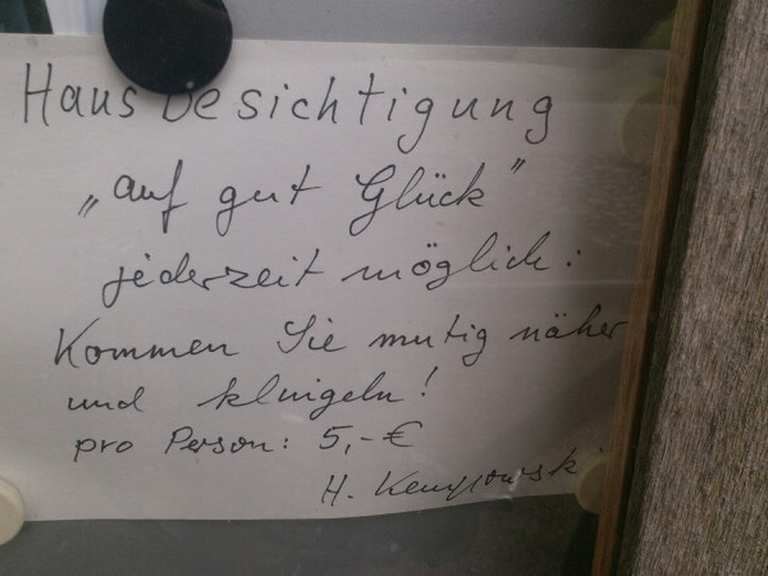 Hausbesichtigung
„auf gut Glück"
jederzeit möglich:
Kommen Sie mutig näher
und klingeln!
pro Person: 5,-€
H. Kempowski